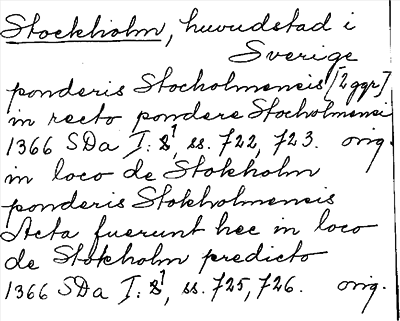 Stockholm, huvudstad i
Sverige
ponderis Stocholmensis [2 ggr]
in recto pondere Stocholmensi
1366 SDa I: 8¹, ss. 722, 723. orig.
in loco de Stokholm
ponderis Stokholmensis
Acta fuerunt hec in loco
de Stokholm predicto
1366 SDa I: 8¹, ss. 725, 726. orig.